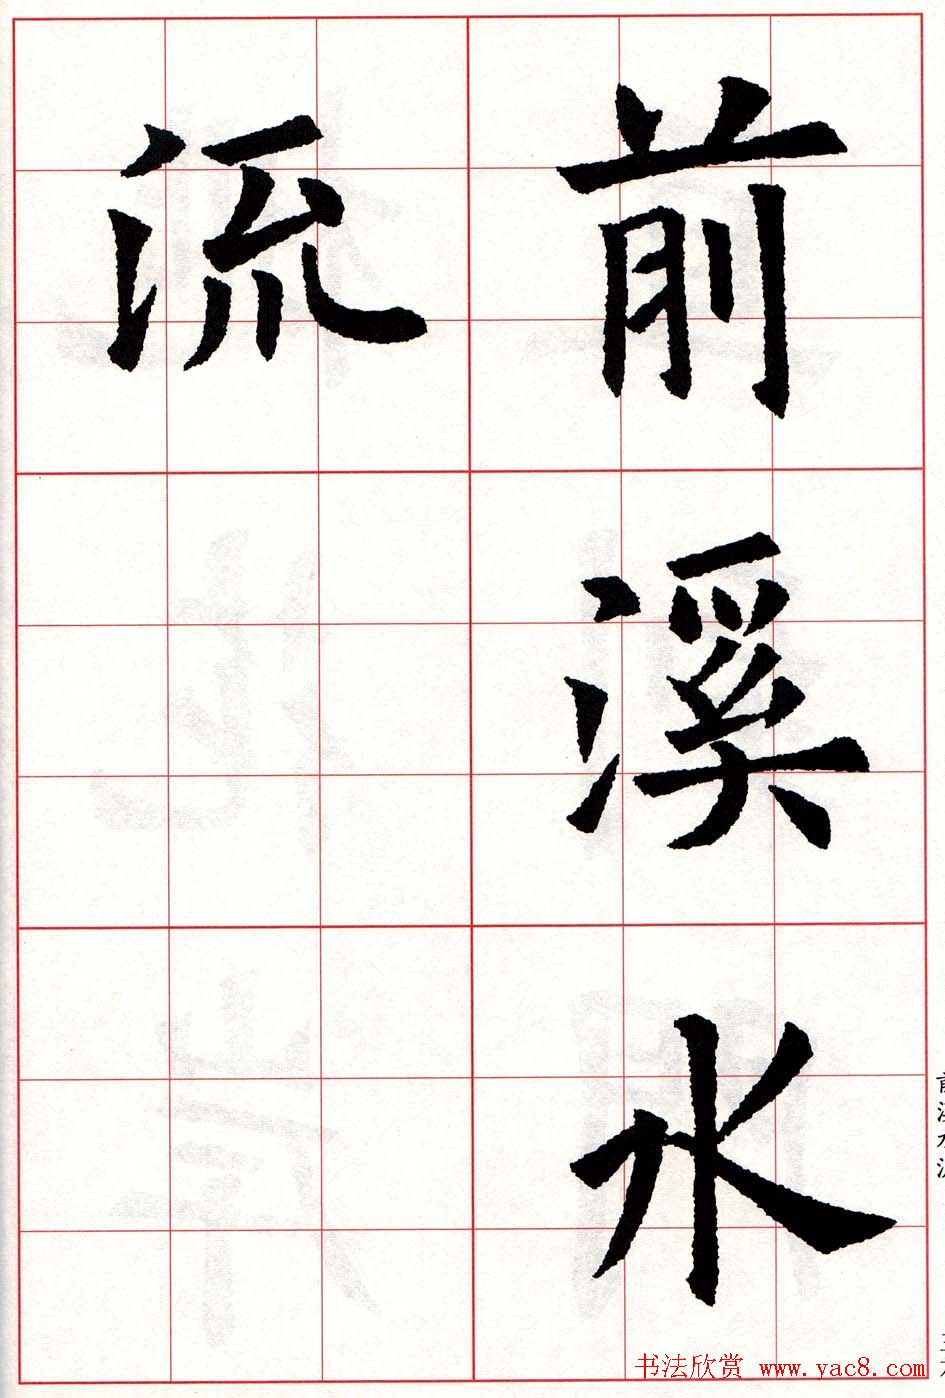 前溪水
流
书法欣赏 www.yac8.com